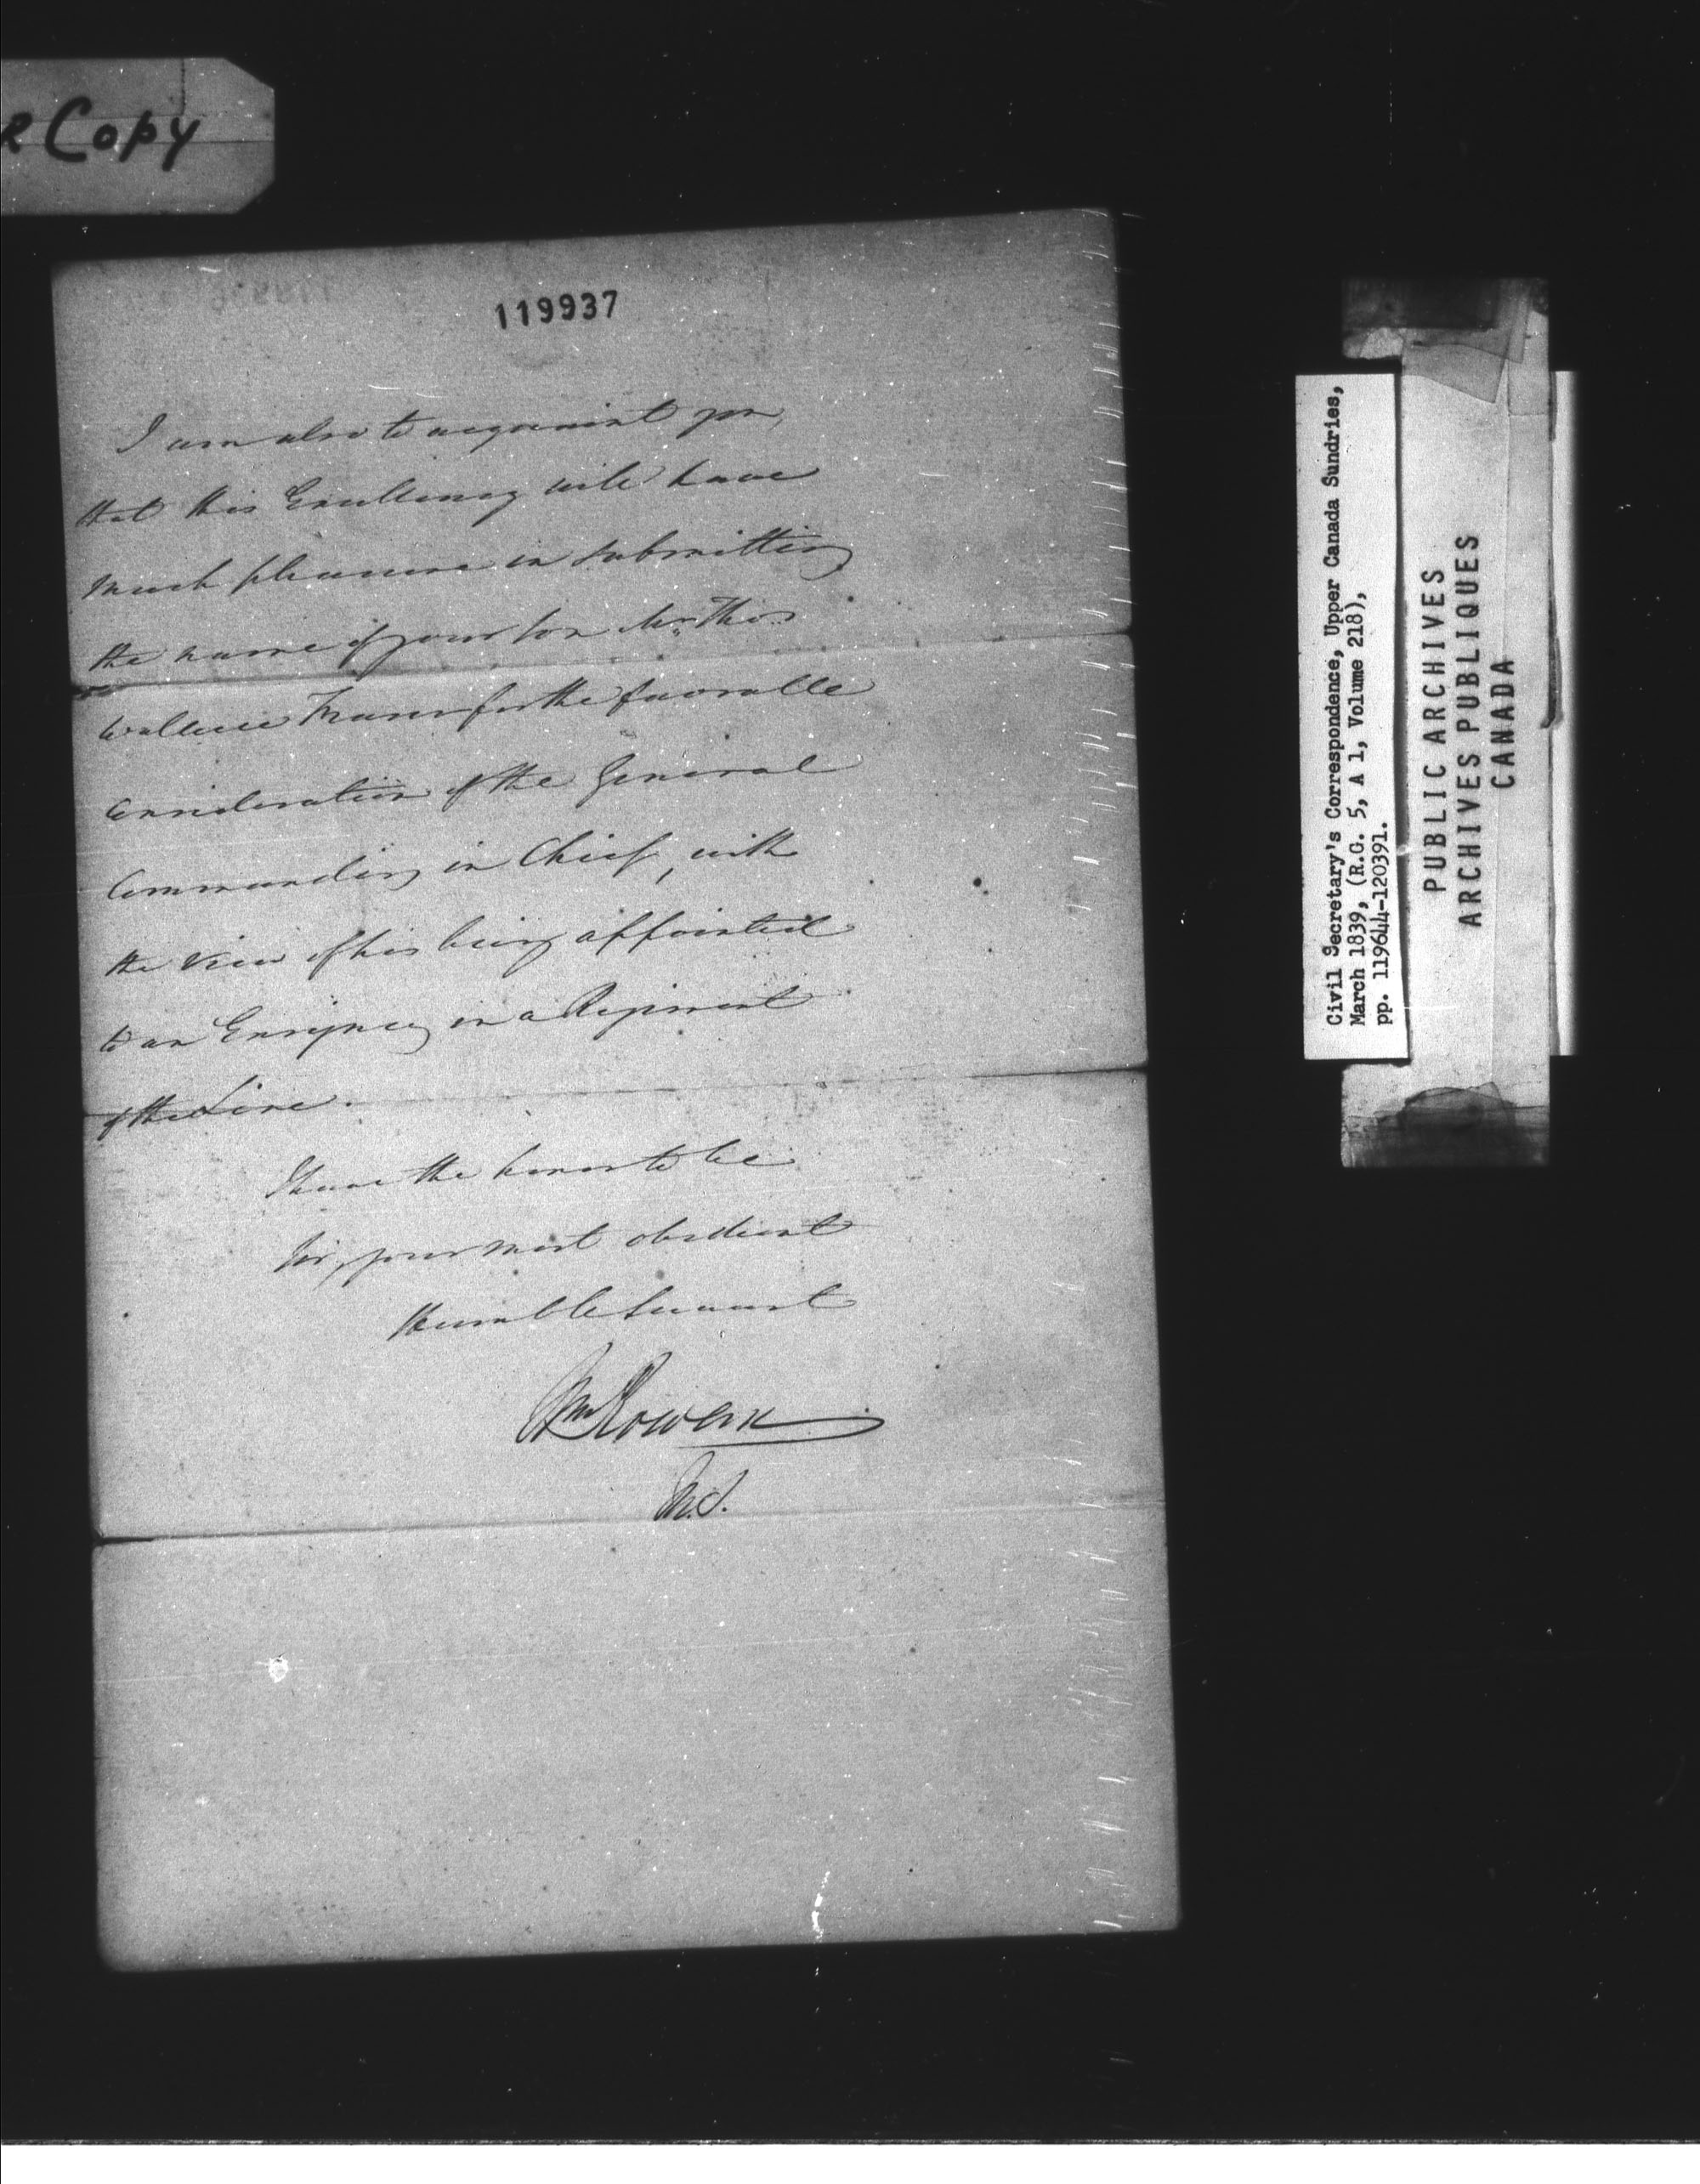 R Copy
119937
I am also to acquaint you,
that His Excellency will have
much pleasure in submitting
the name of your son Mr. Thos
Wallace for the favorable
consideration of the General
Commanding in Chief, with
the view of his being appointed
to an Ensigncy in a Regiment
of the Line.
I have the honor to be
Sir, your most obedient
Humble Servant
Wm Rowan
M.S.
Civil Secretary's Correspondence, Upper Canada Sundries,
March 1839, (R.G. 5, A 1, Volume 218),
pp. 119644-120391.
PUBLIC ARCHIVES
ARCHIVES PUBLIQUES
CANADA